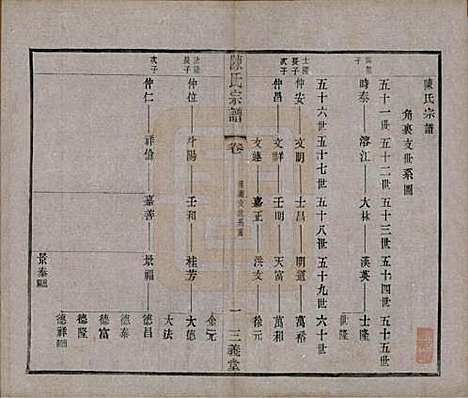 陳氏宗譜
角裏支世系圖
五十一世 五十二世 五十三世 五十四世 五十五世
時泰 溶江 大林 漢英 士隆
世隆
五十六世 五十七世 五十八世 五十九世 六十世
士隆長子 仲安 文明 士昌 明道 萬裕
次子 仲昌 文鮮 士明 天富 萬和
文遠 嘉正 洪文 徐元
陳氏宗譜 卷 三義堂
余元
世隆長子 仲位 壬和 桂芳 大德
大法
次子 仲仁 祥倫 嘉善 景福 德昌
德泰
德富
德隆
景泰 德祥